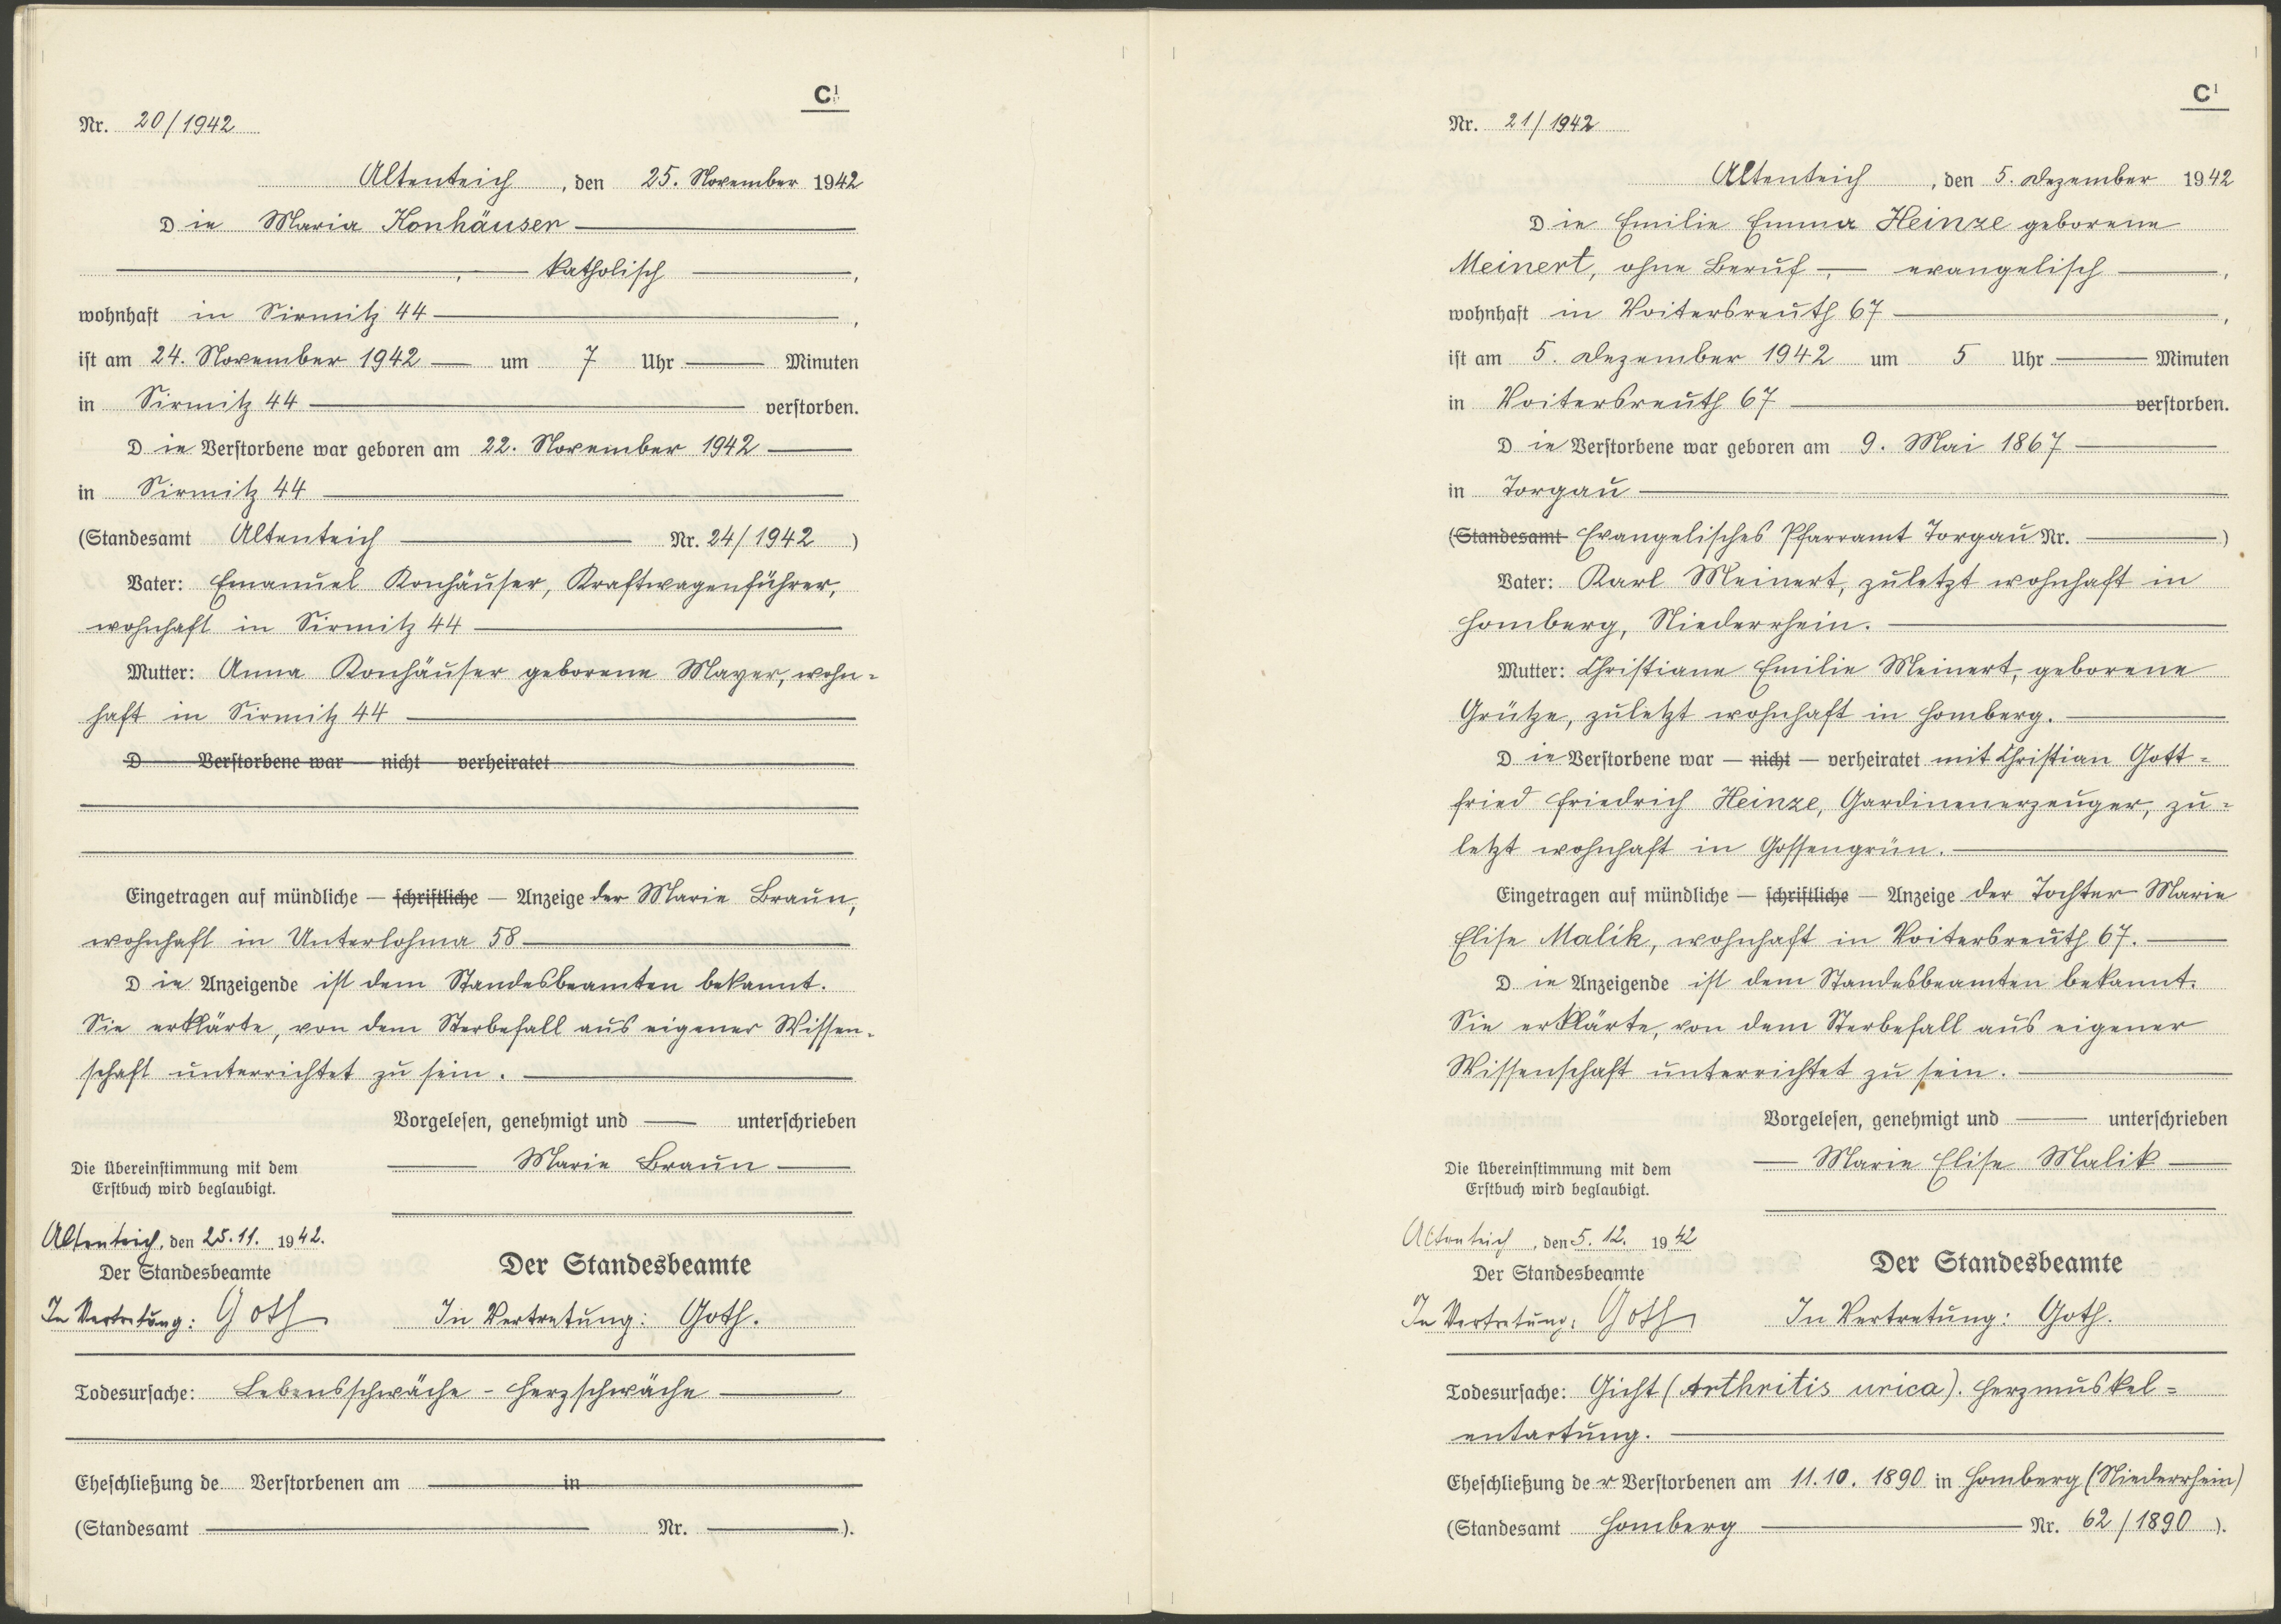 C¹
Nr. 20/1942
Altenteich, den 25. November 1942
Die Maria Konhäuser
, katholisch,
wohnhaft in Sirmitz 44,
ist am 24. November 1942 um 7 Uhr Minuten
in Sirmitz 44 verstorben.
Die Verstorbene war geboren am 22. November 1942
in Sirmitz 44
(Standesamt Altenteich Nr. 24/1942)
Vater: Emanuel Konhäuser, Kraftwagenführer,
wohnhaft in Sirmitz 44
Mutter: Anna Konhäuser geborene Mayer, wohn-
haft in Sirmitz 44
D Verstorbene war nicht verheiratet
Eingetragen auf mündliche — schriftliche — Anzeige der Marie Braun,
wohnhaft in Unterlohma 58
Die Anzeigende ist dem Standesbeamten bekannt.
Sie erklärte, von dem Sterbefall aus eigener Wissen-
schaft unterrichtet zu sein.
Vorgelesen, genehmigt und unterschrieben
Marie Braun
Die Übereinstimmung mit dem
Erstbuch wird beglaubigt.
Altenteich, den 25.11. 1942.
Der Standesbeamte
In Vertretung: Goth
Der Standesbeamte
In Vertretung: Goth.
Todesursache: Lebensschwäche - Herzschwäche
Eheschließung de Verstorbenen am in
(Standesamt Nr. ).
C¹
Nr. 21/1942
Altenteich, den 5. Dezember 1942
Die Emilie Emma Heinze geborene
Meinert, ohne Beruf, evangelisch,
wohnhaft in Voitersreuth 67,
ist am 5. Dezember 1942 um 5 Uhr Minuten
in Voitersreuth 67 verstorben.
Die Verstorbene war geboren am 9. Mai 1867
in Torgau
(Standesamt Evangelisches Pfarramt Torgau Nr. )
Vater: Karl Meinert, zuletzt wohnhaft in
Homberg, Niederrhein.
Mutter: Christiane Emilie Meinert, geborene
Grütze, zuletzt wohnhaft in Homberg.
Die Verstorbene war — nicht — verheiratet mit Christian Gott-
fried Friedrich Heinze, Gardinenerzeuger, zu-
letzt wohnhaft in Gossengrün.
Eingetragen auf mündliche — schriftliche — Anzeige der Tochter Marie
Elise Malik, wohnhaft in Voitersreuth 67.
Die Anzeigende ist dem Standesbeamten bekannt.
Sie erklärte, von dem Sterbefall aus eigener
Wissenschaft unterrichtet zu sein.
Vorgelesen, genehmigt und unterschrieben
Marie Elise Malik
Die Übereinstimmung mit dem
Erstbuch wird beglaubigt.
Altenteich, den 5. 12. 1942
Der Standesbeamte
In Vertretung: Goth
Der Standesbeamte
In Vertretung: Goth.
Todesursache: Gicht (Arthritis urica). Herzmuskel-
entartung.
Eheschließung der Verstorbenen am 11.10. 1890 in Homberg (Niederrhein)
(Standesamt Homberg Nr. 62/1890).